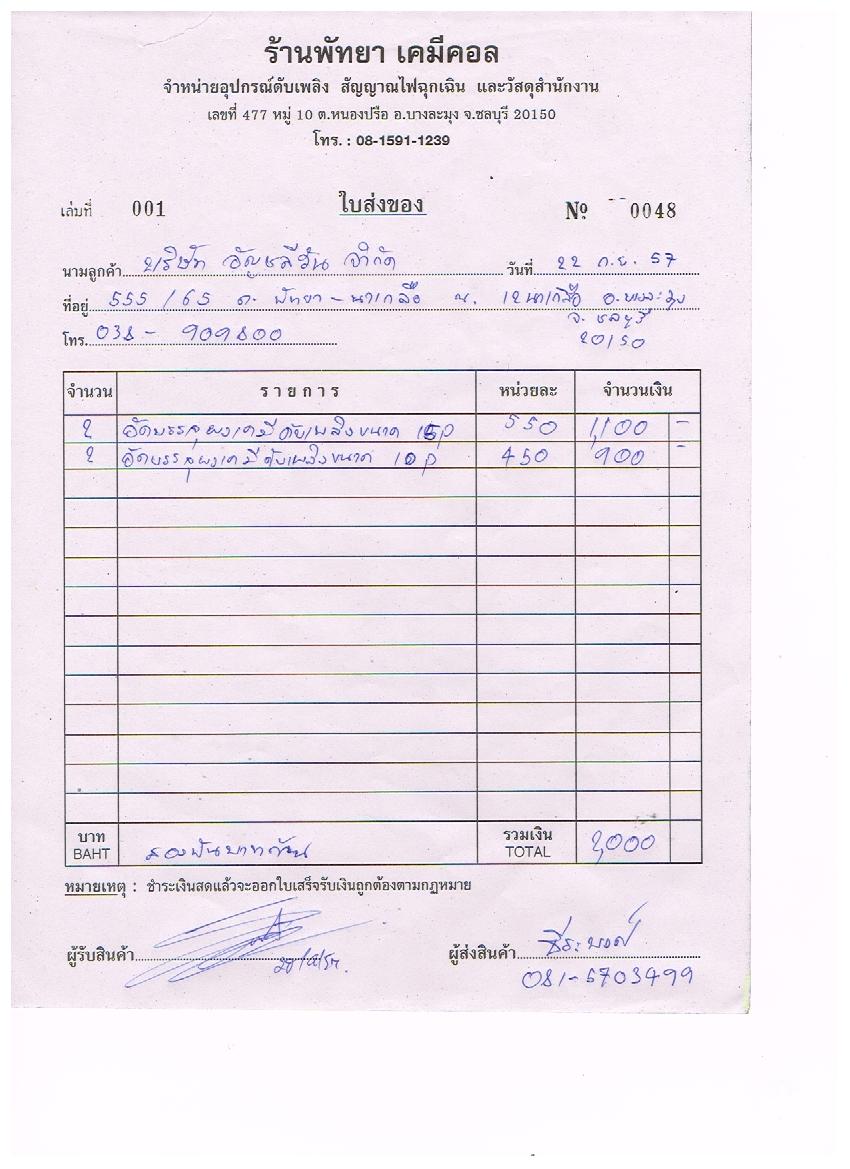 ร้านพัทยา เคมีคอล
จำหน่ายอุปกรณ์ดับเพลิง สัญญาณไฟฉุกเฉิน และวัสดุสำนักงาน
เลขที่ 477 หมู่ 10 ต.หนองปรือ อ.บางละมุง จ.ชลบุรี 20150
โทร. : 08-1591-1239
เล่มที่ 001 ใบส่งของ Nº 0048
นามลูกค้า บริษัท อัญชลีวัน จำกัด วันที่ 22 ก.ย. 57
ที่อยู่ 555/65 ถ. พัทยา-นาเกลือ ซ. 12 นาเกลือ อ.บางละมุง
จ. ชลบุรี
โทร. 038-909800 20150
จำนวน รายการ หน่วยละ จำนวนเงิน
2 อัดบรรจุผงเคมีดับเพลิงขนาด 15p 550 1,100 -
2 อัดบรรจุผงเคมีดับเพลิงขนาด 10p 450 900 -
บาท รวมเงิน
BAHT สองพันบาทถ้วน TOTAL 2,000
หมายเหตุ : ชำระเงินสดแล้วจะออกใบเสร็จรับเงินถูกต้องตามกฎหมาย
ผู้รับสินค้า ผู้ส่งสินค้า ธีระพงศ์
081-5703499